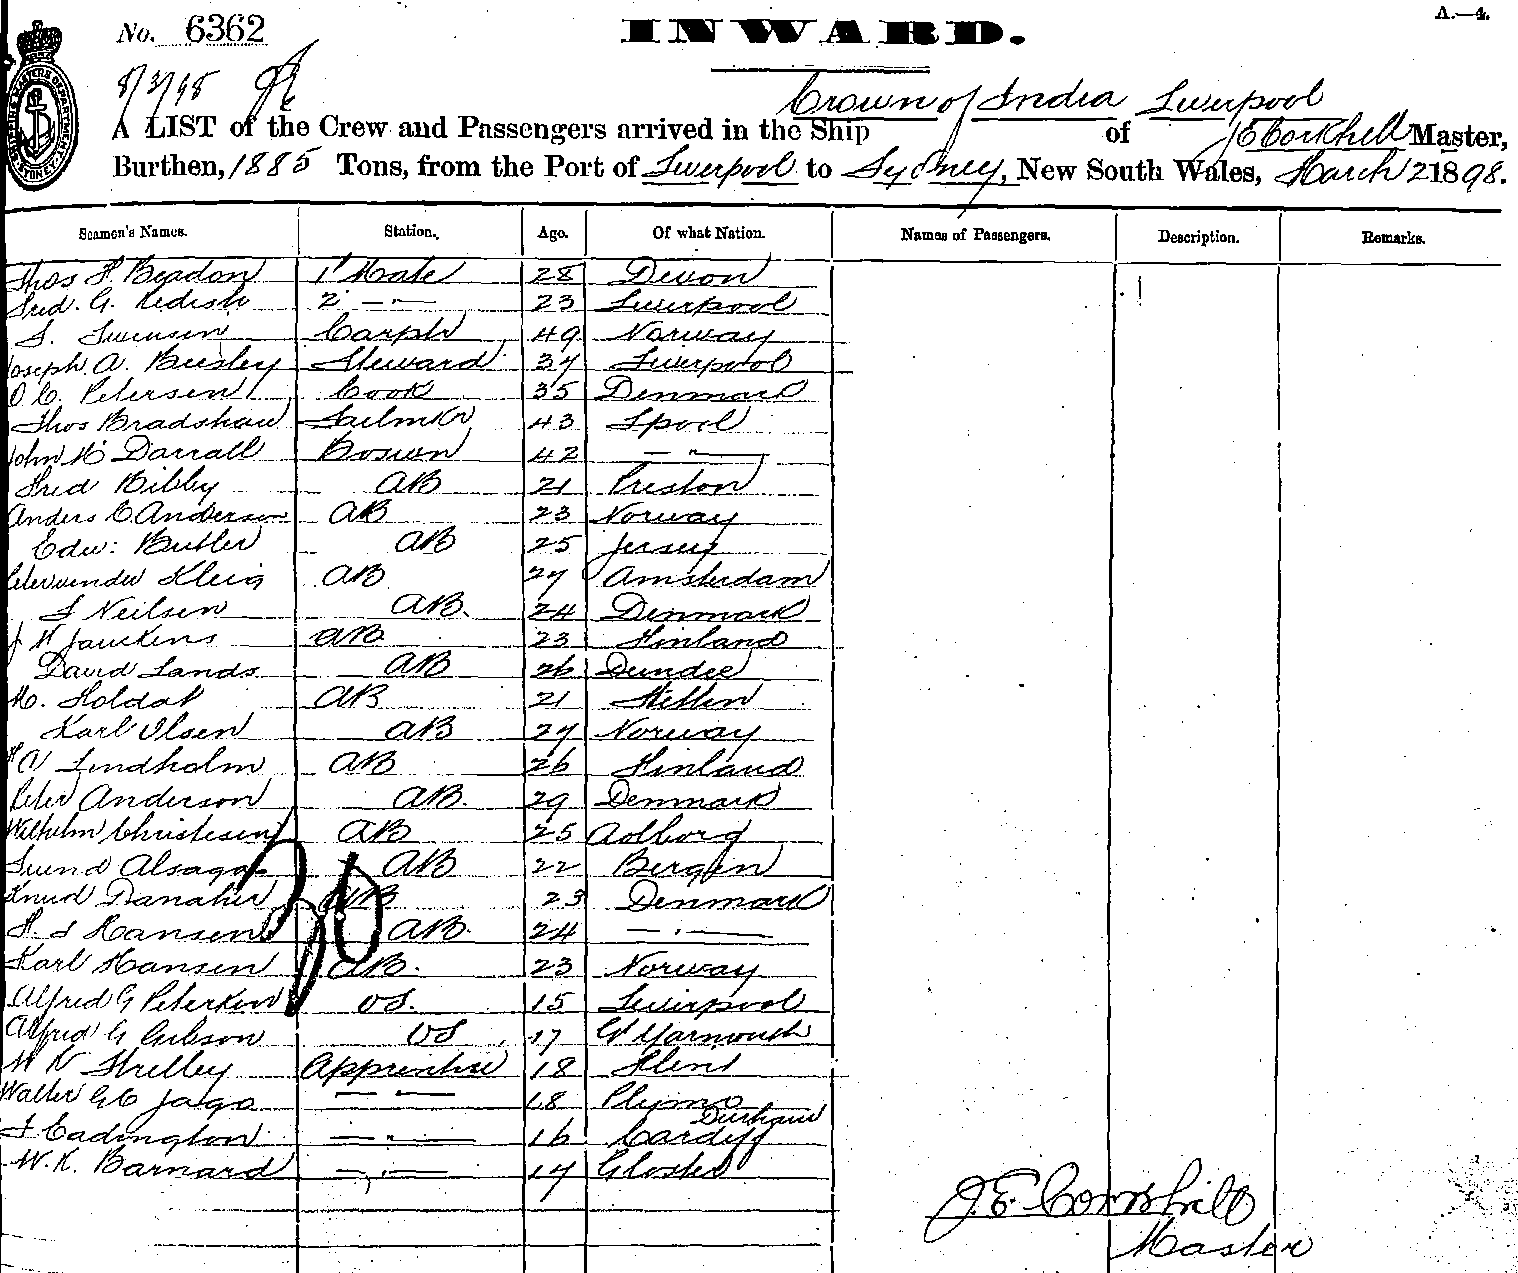 No. 6362
INWARD.
A.—4.
8/3/98
Crown of India Liverpool
A LIST of the Crew and Passengers arrived in the Ship of J E Corkhill Master,
Burthen, 1885 Tons, from the Port of Liverpool to Sydney, New South Wales, March 2 1898.
Seamen's Names. Station. Age. Of what Nation. Names of Passengers. Description. Remarks.
Thos H Beadon 1t Mate 28 Devon
Fred. G. Redish 2 —"— 23 Liverpool
S. Swensen Carptr 49 Norway
Joseph A. Beesley Steward 37 Liverpool
O C. Petersen Cook 35 Denmark
Thos Bradshaw Sailmkr 43 Lpool
John H Darrall Bosun 42 —"—
Fred Bibby AB 21 Preston
Anders C Anderson AB 23 Norway
Edw: Butler AB 25 Jersey
Klein AB 27 Amsterdam
S Neilsen AB. 24 Denmark
J H AB 23 Finland
David Lands AB 26 Dundee
M. Holdat AB 21 Stettin
Karl Olsen AB 27 Norway
A Lindholm AB 26 Finland
Peter Anderson AB. 29 Denmark
Wilhelm Christesen AB 25 Aalborg
AB 22 Bergen
Knud Danaher AB 23 Denmark
H. S Hansen AB. 24 —"—
Karl Hansen AB. 23 Norway
Alfred G Peterken OS. 15 Liverpool
Alfred G Gibson OS 17 Gt Yarmouth
Strelley Apprentice 18 Flint
Walter G C Jago —"— 18 Plymo
Durham
Eadington —"— 16 Cardiff
W. K. Barnard —"— 17 Gloster
30
J. E. Corkhill
Master